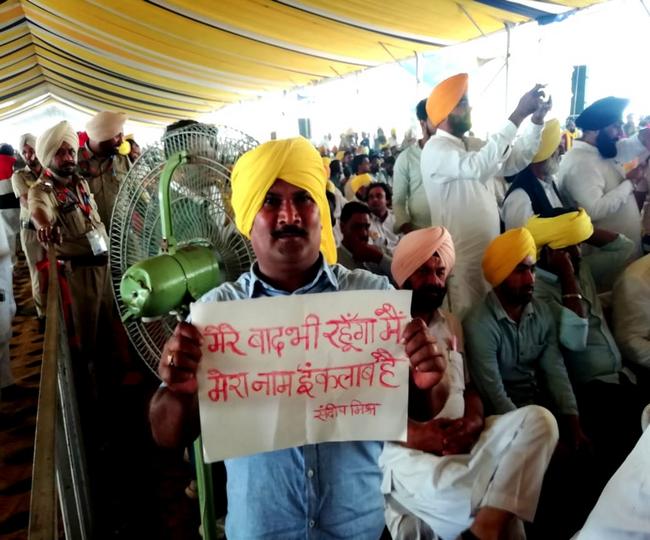 मेरे बाद भी रहूँगा मैं
मेरा नाम इंकलाब है
संदीप मिश्र